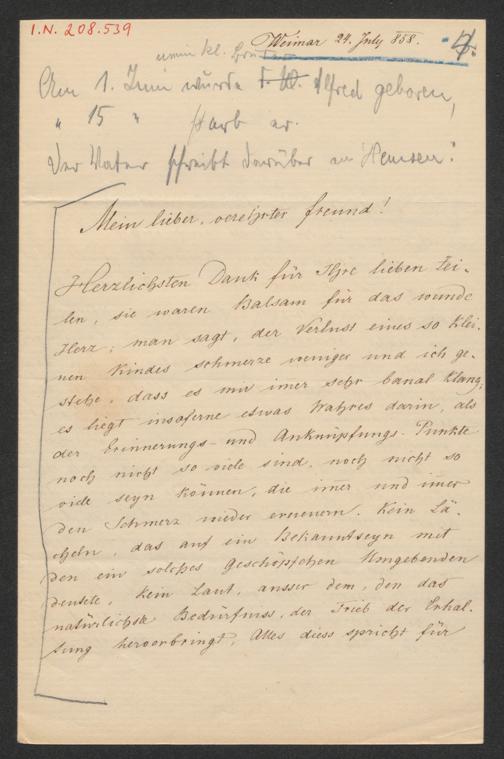 I.N. 208.539
Weimar 24. July 858.
4.
mein kl. Bruder
Am 1. Juni wurde Alfred geboren,
" 15 " starb er.
Der Vater schreibt darüber an
Mein lieber, vereijrter freund!
Herzlichsten Dank für Ihre lieben Zei-
len, sie waren Balsam für das wunde
Herz; man sagt, der Verlust eines so klei-
nen Kindes schmerze weniger und ich ge-
stehe, dass es mir imer sehr banal klang,
es liegt insoferne etwas Wahres darin, als
der Erinnerungs- und Anknüpfungs-Punkte
noch nicht so viele sind, noch nicht so
viele seyn können, die imer und imer
den Schmerz wieder erneuern. Kein Lä-
cheln, das auf ein Bekanntseyn mit
den ein solches Geschöpfchen Umgebenden
deutete, kein Laut, ausser dem, den das
natürlichste Bedürfniss, der Trieb der Erhal-
tung hervorbringt, Alles diess spricht für